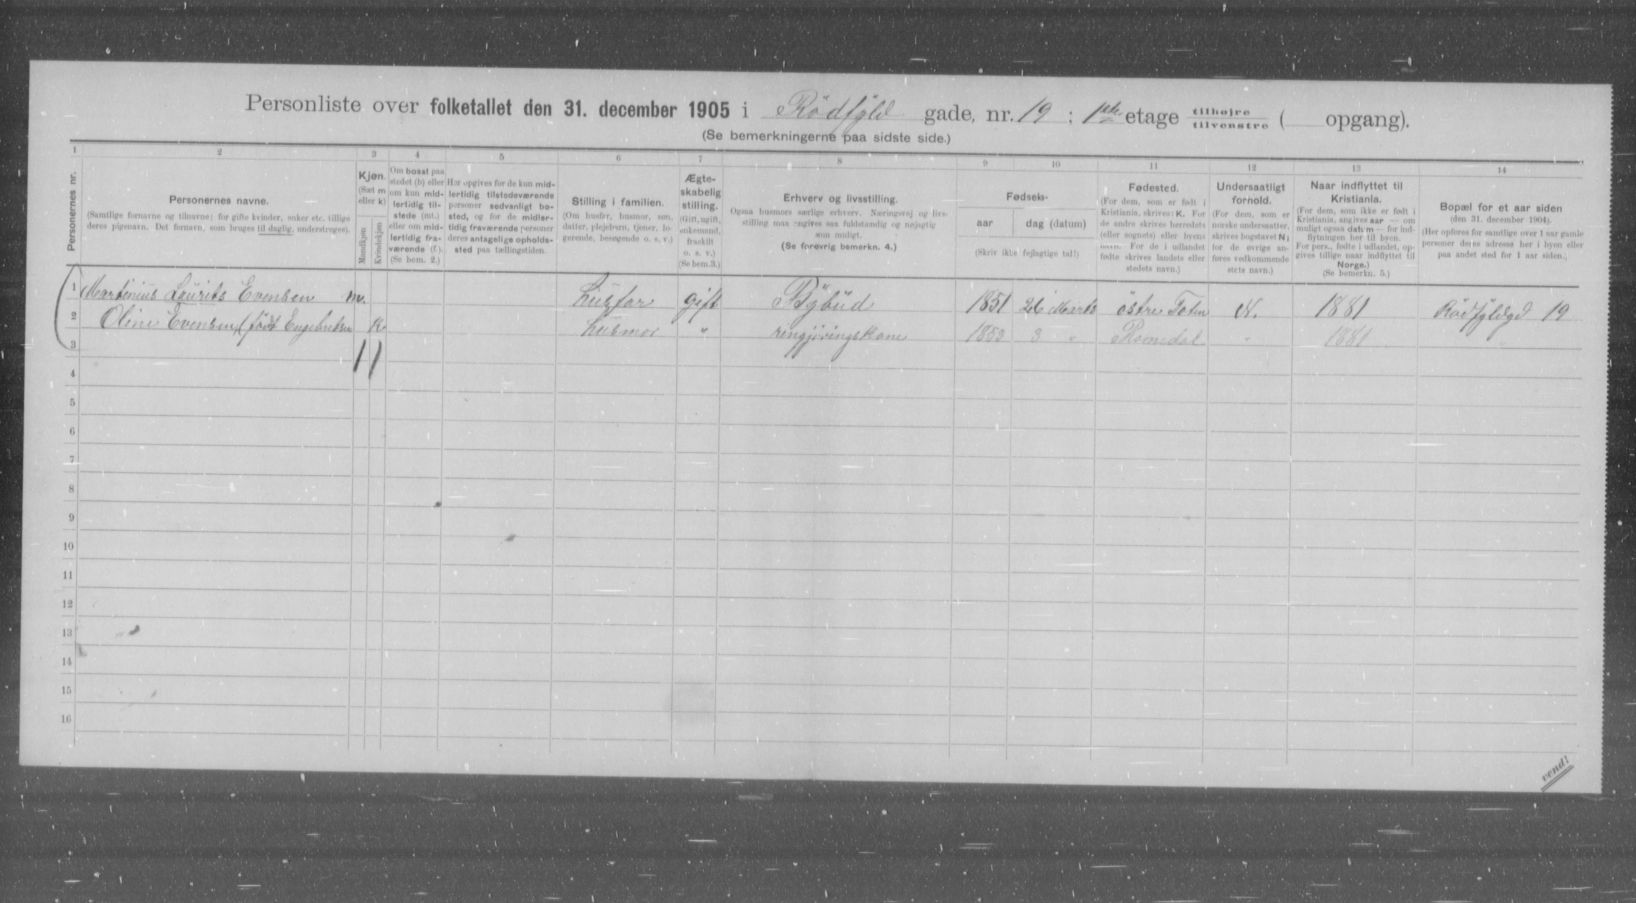 Personliste over folketallet den 31. december 1905 i Rödfyld gade, nr. 19 ; 1ste etage tilhøjre tilvenstre ( opgang).
(Se bemerkningerne paa sidste side.)
1 2 3 4 5 6 7 8 9 10 11 12 13 14
Personernes nr.
Personernes navne.
(Samtlige fornavne og tilnavne; for gifte kvinder, enker etc. tillige
deres pigenavn. Det fornavn, som bruges til daglig, understreges).
Kjøn.
(Sæt m
eller k)
Mandkjøn
Kvindekjøn
Om bosat paa
stedet (b) eller
om kun mid-
lertidig til-
stede (mt.)
eller om mid-
lertidig fra-
værende (f.).
(Se bem. 2.)
Her opgives for de kun mid-
lertidig tilstedeværende
personer sedvanligt bo-
sted, og for de midler-
tidig fraværende personer
deres antagelige opholds-
sted paa tællingstiden.
Stilling i familien.
(Om husfar, husmor, søn,
datter, plejebarn, tjener, lo-
gerende, besøgende o. s. v.)
Ægte-
skabelig
stilling.
(Gift, ugift,
enkemand,
fraskilt
o. s. v.)
(Se bem. 3.)
Erhverv og livsstilling.
Ogsaa husmors særlige erhverv. Næringsvej og livs-
stilling maa angives saa fuldstændig og nøjagtig
som muligt.
(Se forøvrig bemerkn. 4.)
Fødsels-
aar dag (datum)
(Skriv ikke fejlagtige tal!)
Fødested.
(For dem, som er født i
Kristiania, skrives: K. For
de andre skrives herredets
(eller sognets) eller byens
navn. For de i udlandet
fødte skrives landets eller
stedets navn.)
Undersaatligt
forhold.
(For dem, som er
norske undersaatter,
skrives bogstavet N;
for de øvrige an-
føres vedkommende
stats navn.)
Naar indflyttet til
Kristiania.
(For dem, som ikke er født i
Kristiania, angives aar — om
muligt ogsaa datum — for ind-
flytningen her til byen.
For pers., fødte i udlandet, op-
gives tillige naar indflyttet til
Norge.)
(Se bemerkn. 5.)
Bopæl for et aar siden
(den 31. december 1904).
(Her opføres for samtlige over 1 aar gamle
personer deres adresse her i byen eller
paa andet sted for 1 aar siden.)
1 Martinius Laurits Evensen m. Husfar gift Bybud 1851 26 Marts östre Toten N. 1881 Rödfyldgd 19
2 Oline Evensen (född Engebretsen k Husmor " rengjöringskone 1853 3 " Romedal " 1881 "
3
4
5
6
7
8
9
10
11
12
13
14
15
16
vend!